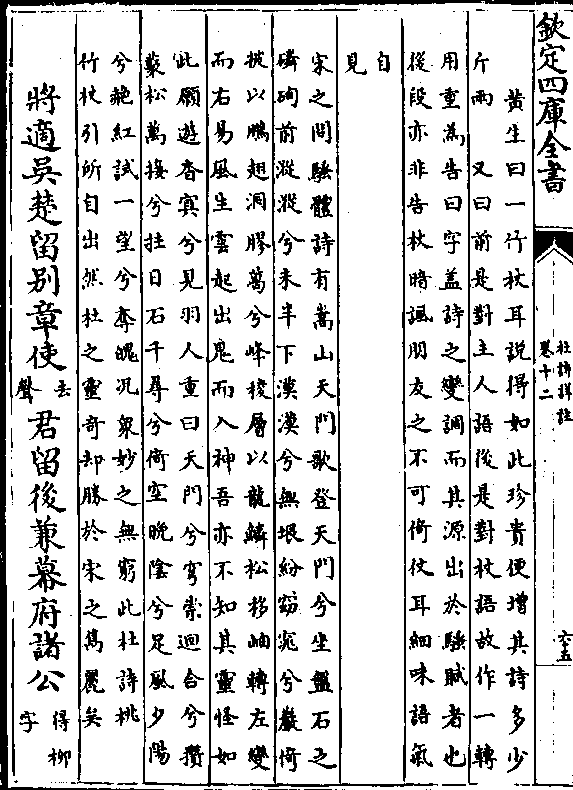 欽定四庫全書
杜詩詳註
卷十二
六十五
黃生曰一行杖耳說得如此珍貴便增其詩多少
斤兩 又曰前是對主人語後是對杖語故作一轉
用重為告曰字盖詩之變調而其源出於騷賦者也
後段亦非告杖暗諷朋友之不可倚仗耳細味語氣
自
見
宋之問騷體詩有嵩山天門歌登天門兮坐盤石之
磷峋前漎漎兮未半下漠漠兮無垠紛窈窕兮巖倚
披以鵬翅洞膠葛兮峰稜層以龍鱗松移岫轉左變
而右易風生雲起出鬼而入神吾亦不知其靈怪如
此願遊杳冥兮見羽人重曰天門兮穹崇迴合兮攢
藂松萬接兮拄日石千尋兮倚空晚陰兮足風夕陽
兮赩紅試一望兮奪魄况衆妙之無窮此杜詩桃
竹杖引所自出然杜之靈奇却勝於宋之雋麗矣
將適吳楚留別章使去聲君留後兼幕府諸公得柳字